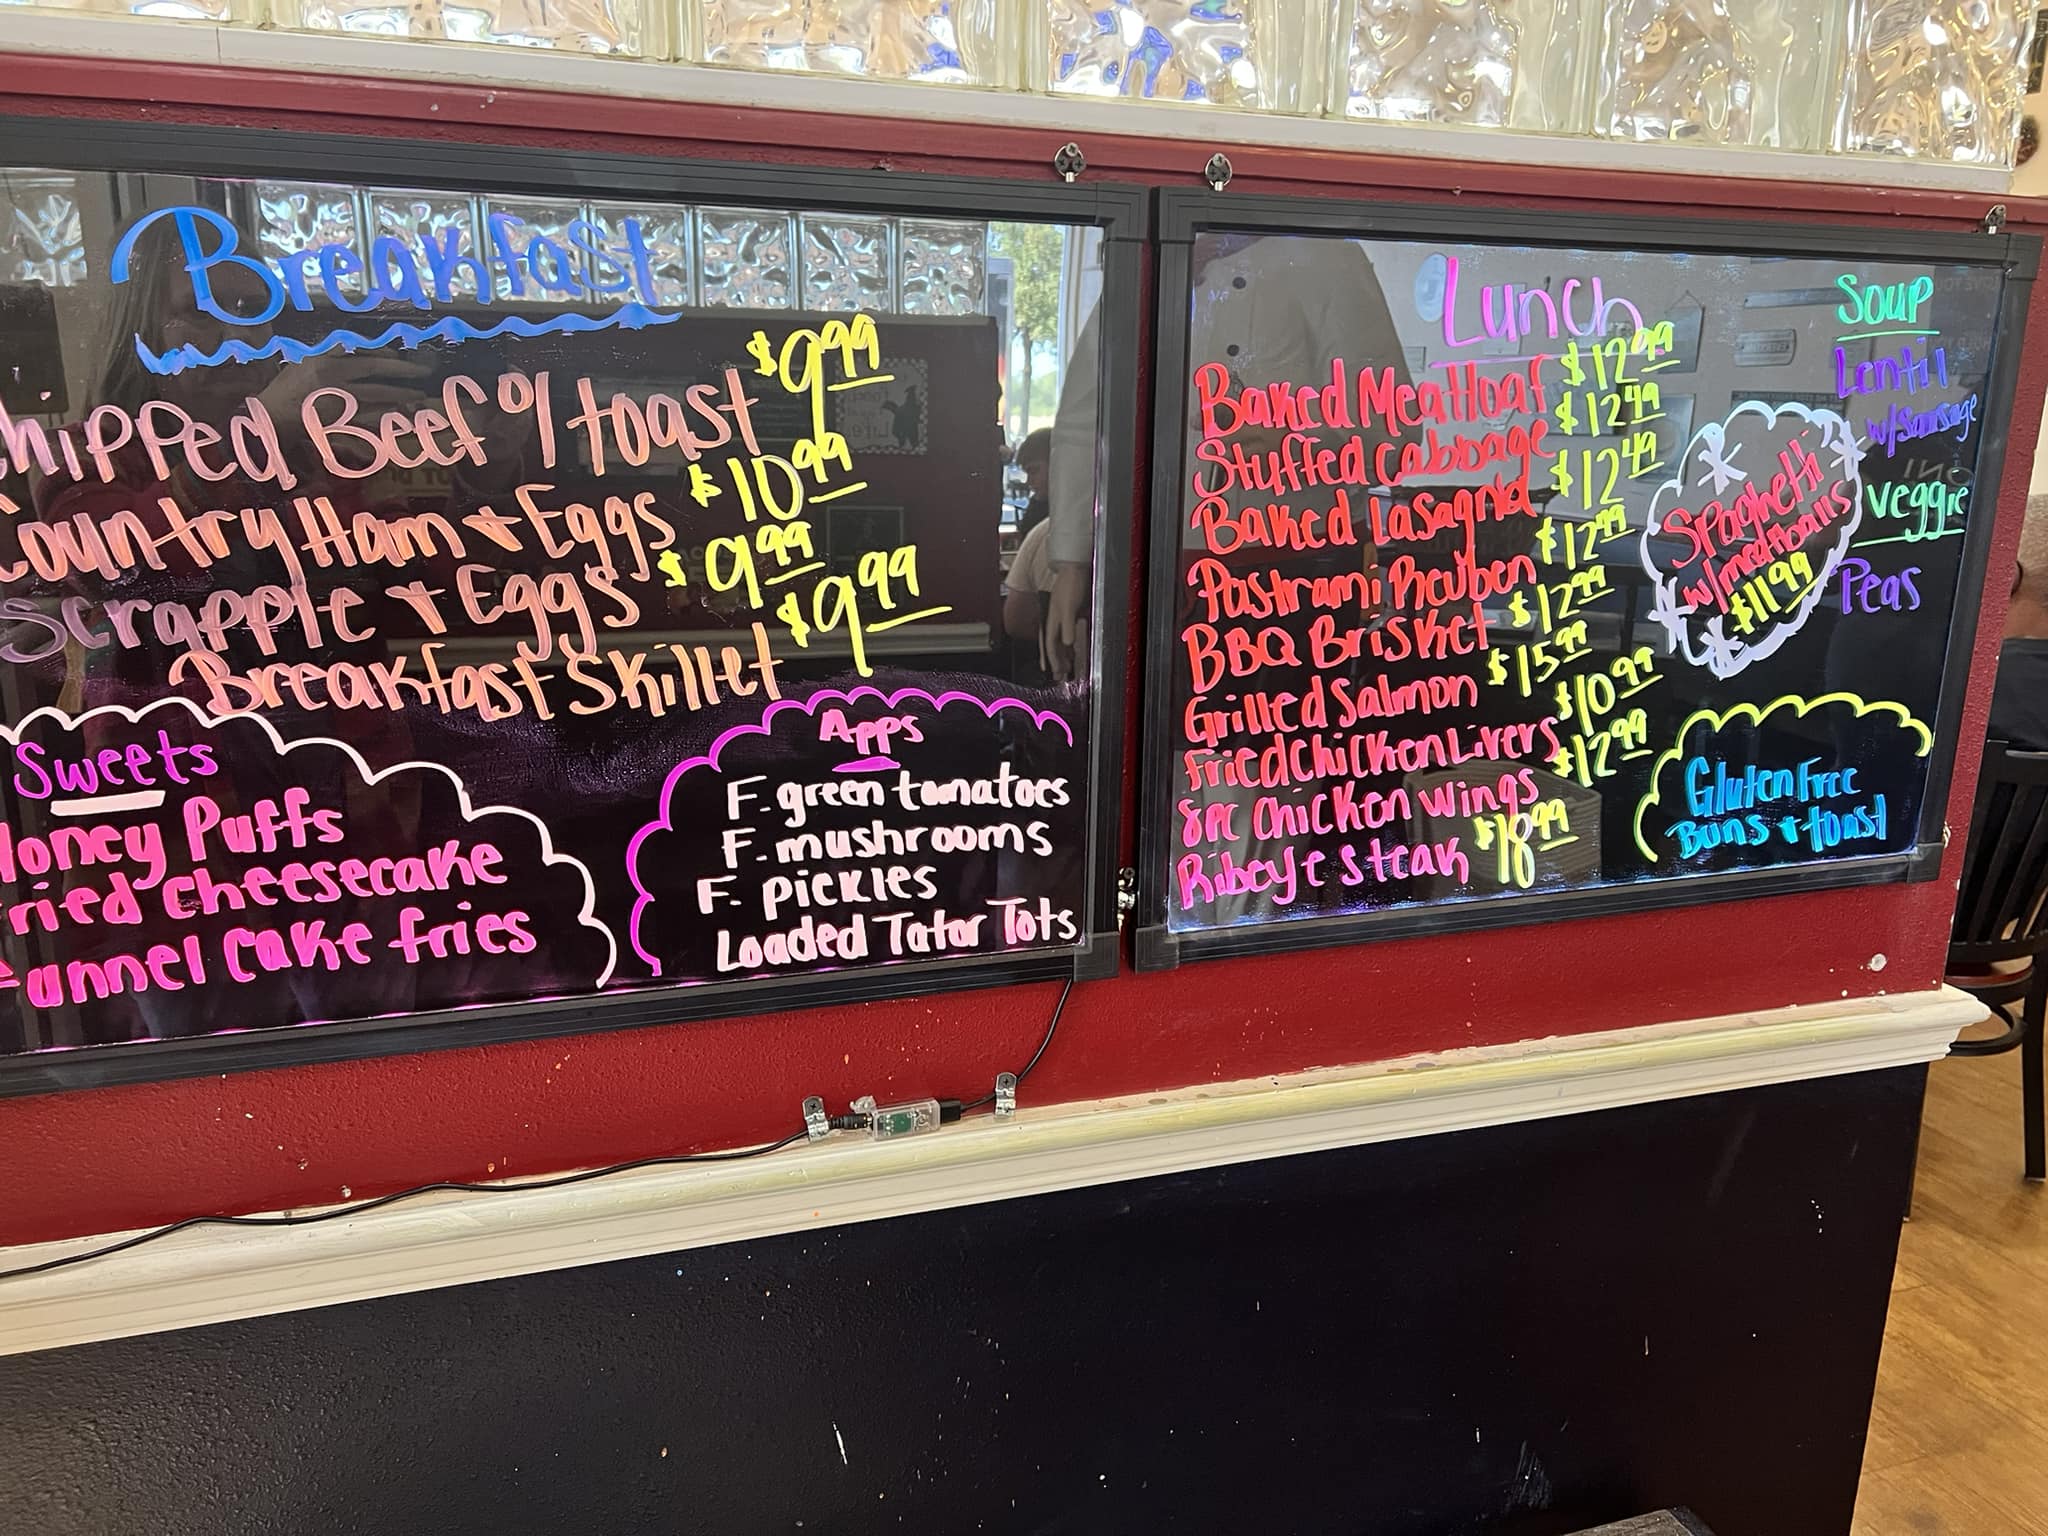 Breakfast
Chipped Beef o/ toast $9.99
Country Ham & Eggs $10.99
Scrapple & Eggs $9.99
Breakfast Skillet $9.99
Sweets
Honey Puffs
Fried Cheesecake
Funnel Cake fries
Apps
F. green tomatoes
F. mushrooms
F. pickles
Loaded Tator Tots
Lunch
Baked Meatloaf $12.99
Stuffed Cabbage $12.49
Baked Lasagna $12.49
Pastrami Reuben $12.99
BBQ Brisket $12.99
Grilled Salmon $15.99
Fried Chicken Livers $10.99
8pc Chicken Wings $12.99
Ribeye Steak $18.99
Spaghetti
w/ meatballs
$11.99
Soup
Lentil
w/ Sausage
Veggie
Peas
Gluten Free
Buns & toast